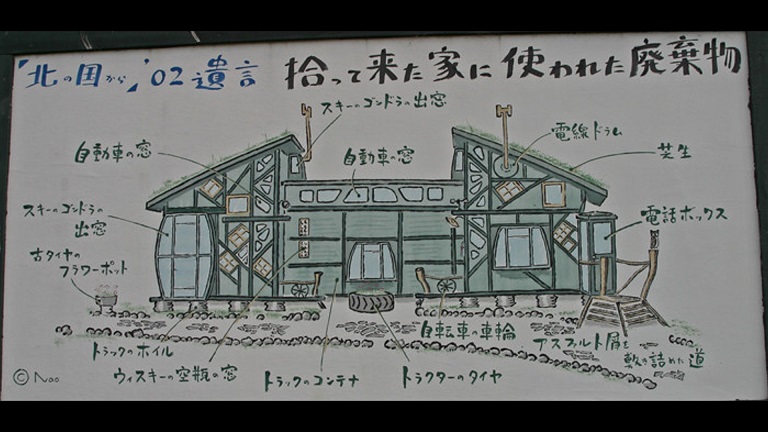 「北の国から」'02遺言 拾って来た家に使われた廃棄物
スキーのゴンドラの出窓
電線ドラム
自動車の窓
自動車の窓
芝生
スキーのゴンドラの
出窓
電話ボックス
古タイヤの
フラワーポット
自転車の車輪
アスファルト屑を
敷き詰めた道
トラックのホイル
ウィスキーの空瓶の窓
トラックのコンテナ
トラクターのタイヤ
© Nao